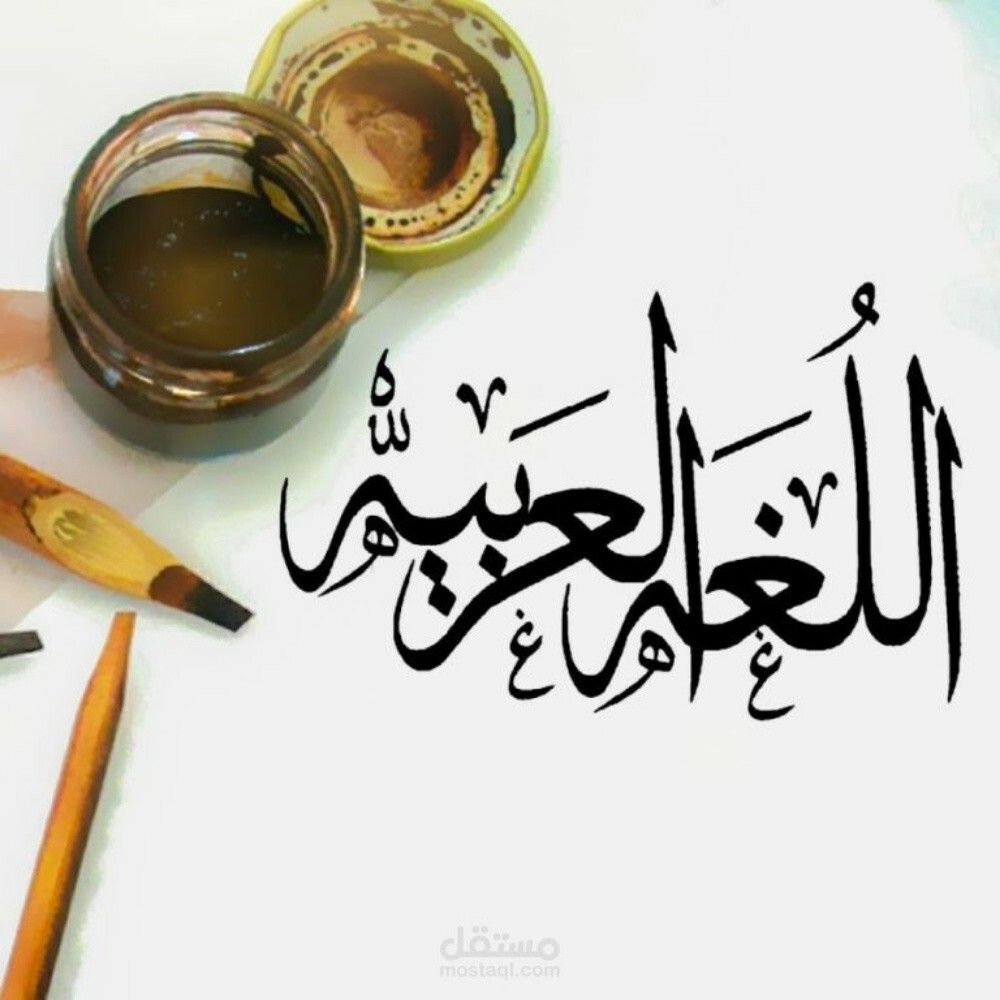 اللُغَه العَربيّه
مستقل
mostaql.com